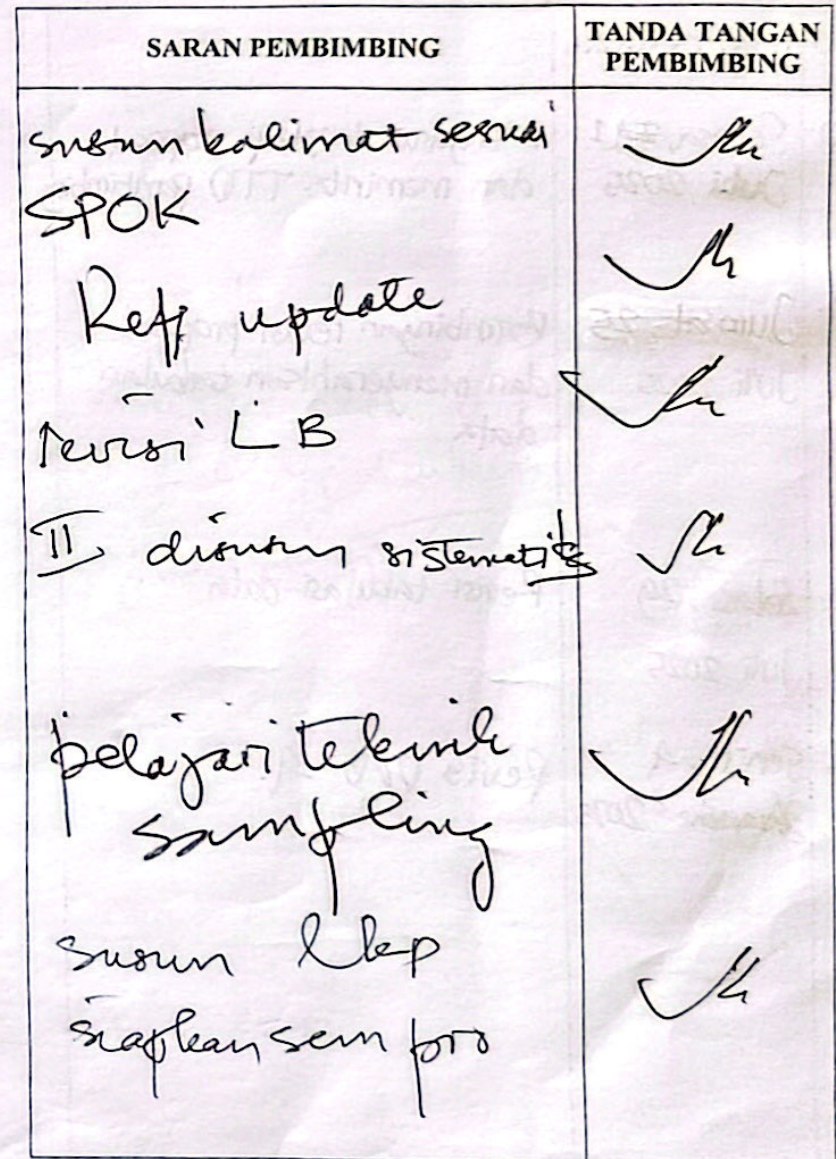 SARAN PEMBIMBING
TANDA TANGAN
PEMBIMBING
susun kalimat sesuai
SPOK
Reff update
revisi LB
II disusun sistematis
pelajari teknik
sampling
susun
siapkan sem pro